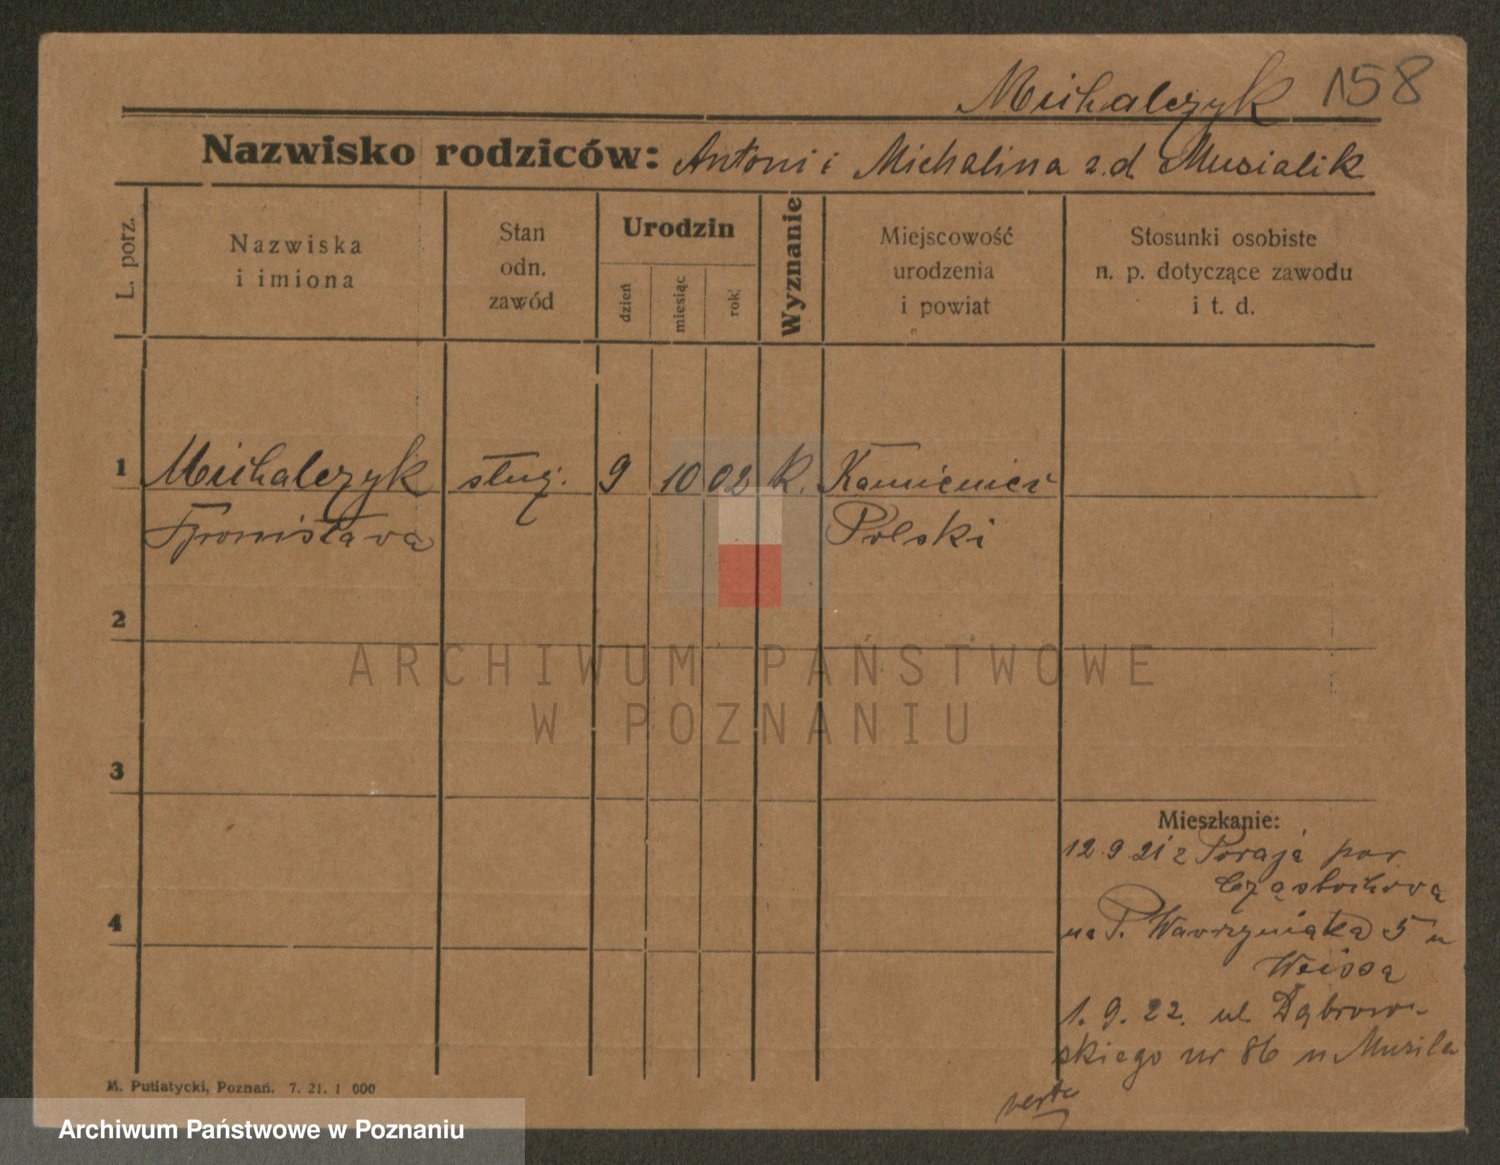 Michalczyk 158
Nazwisko rodziców: Antoni i Michalina z.d. Musialik
L. porz.
Nazwiska
i imiona
Stan
odn.
zawód
Urodzin
dzień
miesiąc
rok
Wyznanie
Miejscowość
urodzenia
i powiat
Stosunki osobiste
n. p. dotyczące zawodu
i t. d.
1 Michalczyk służ. 9 10 02 k.
Polski
2
3
4
Mieszkanie:
12 9 21 z Poraja
Częstochowa
na P. Wawrzyniaka 5 u
Weissa
1. 9. 22. ul. Dąbrow-
skiego nr 86 u
verte
M. Putiatycki, Poznań. 7. 21. 1 000
ARCHIWUM PAŃSTWOWE
W POZNANIU
Archiwum Państwowe w Poznaniu